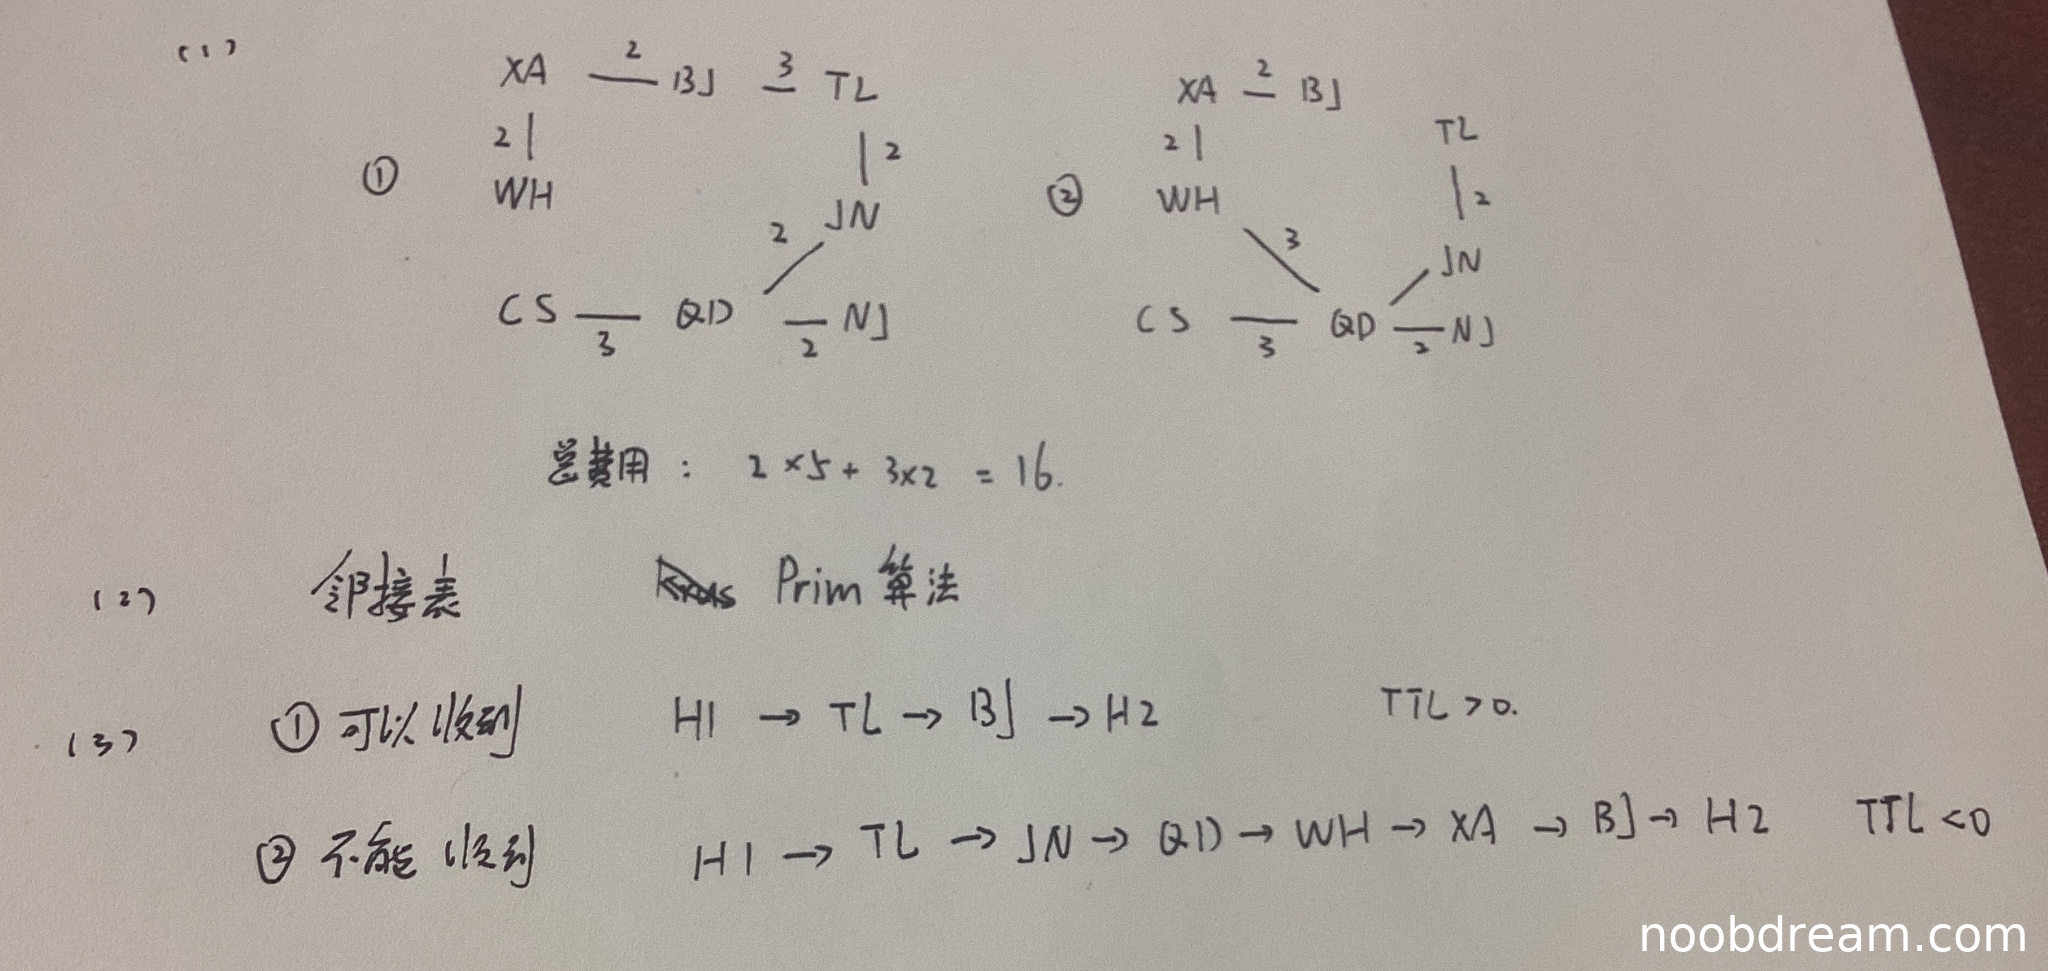 (1)
XA 2 BJ 3 TL
2 2
① WH JN
2
CS 3 QD 2 NJ
XA 2 BJ
2 TL
② WH 2
3 JN
CS 3 QD 2 NJ
总费用： 2×5+ 3×2 = 16.
(2) 邻接表 Prim 算法
(3) ① 可以收到 H1 → TL → BJ → H2 TTL>0.
② 不能收到 H1 → TL → JN → QD → WH → XA → BJ → H2 TTL<0
noobdream.com